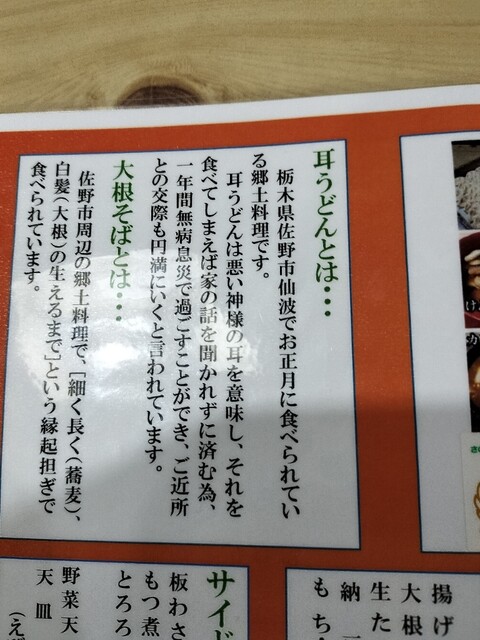 耳うどんとは・・・
栃木県佐野市仙波でお正月に食べられてい
る郷土料理です。
耳うどんは悪い神様の耳を意味し、それを
食べてしまえば家の話を聞かれずに済む為、
一年間無病息災で過ごすことができ、ご近所
との交際も円満にいくと言われています。
大根そばとは・・・
佐野市周辺の郷土料理で、「細く長く(蕎麦)、
白髪(大根)の生えるまで」という縁起担ぎで
食べられています。
揚げ
大根
生た
納
もち
サイド
板わさ
もつ煮
とろろ
野菜天
天皿
(えび